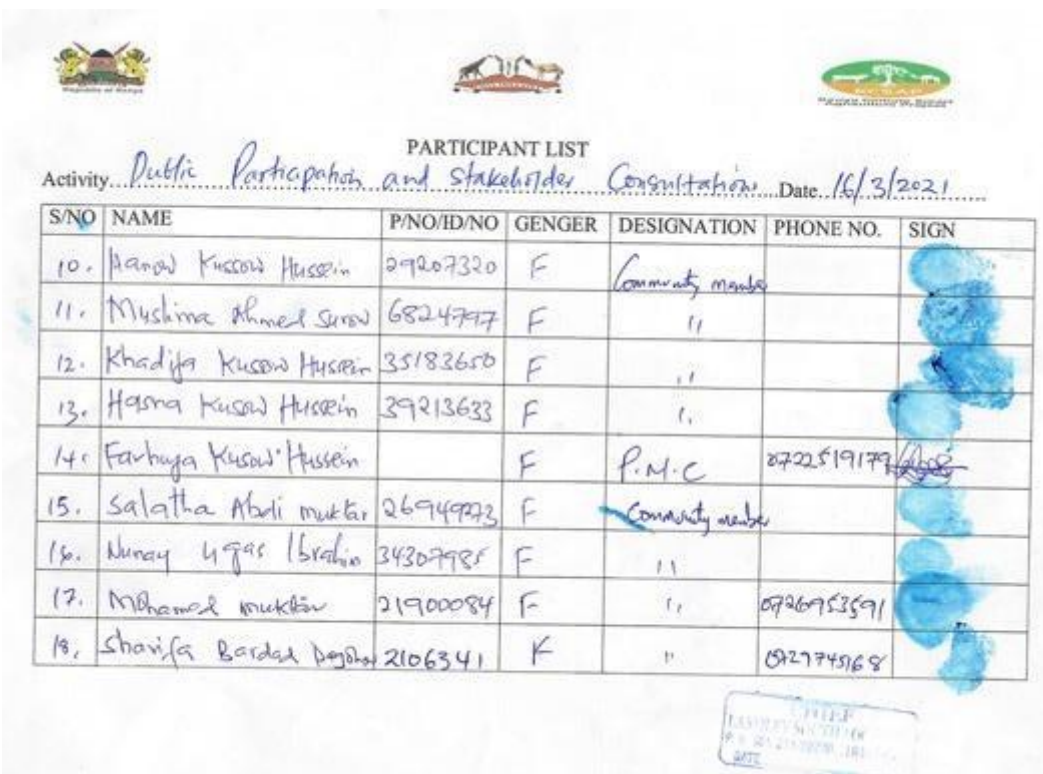 Republic of Kenya
KCSAP
PARTICIPANT LIST
Activity Public Participation and Stakeholder Consultation Date 16/3/2021
S/NO NAME P/NO/ID/NO GENGER DESIGNATION PHONE NO. SIGN
10. Kussow Hussein 29207320 F Community member
11. Muslima Ahmed Surow 6824797 F ,,
12. Khadija Kusow Hussein 35183650 F ,,
13. Hasna Kusow Hussein 39213633 F ,,
14. Farhuya Kusow Hussein F P.M.C 0722519179
15. Salatha Abdi muktar 26949273 F Community member
16. Nunay Ugas Ibrahim 34307985 F ,,
17. Mohamed muktar 21900084 F ,, 0726953591
18. Sharifa Bardad 2106341 F ,, 0729745168
CHIEF
DATE